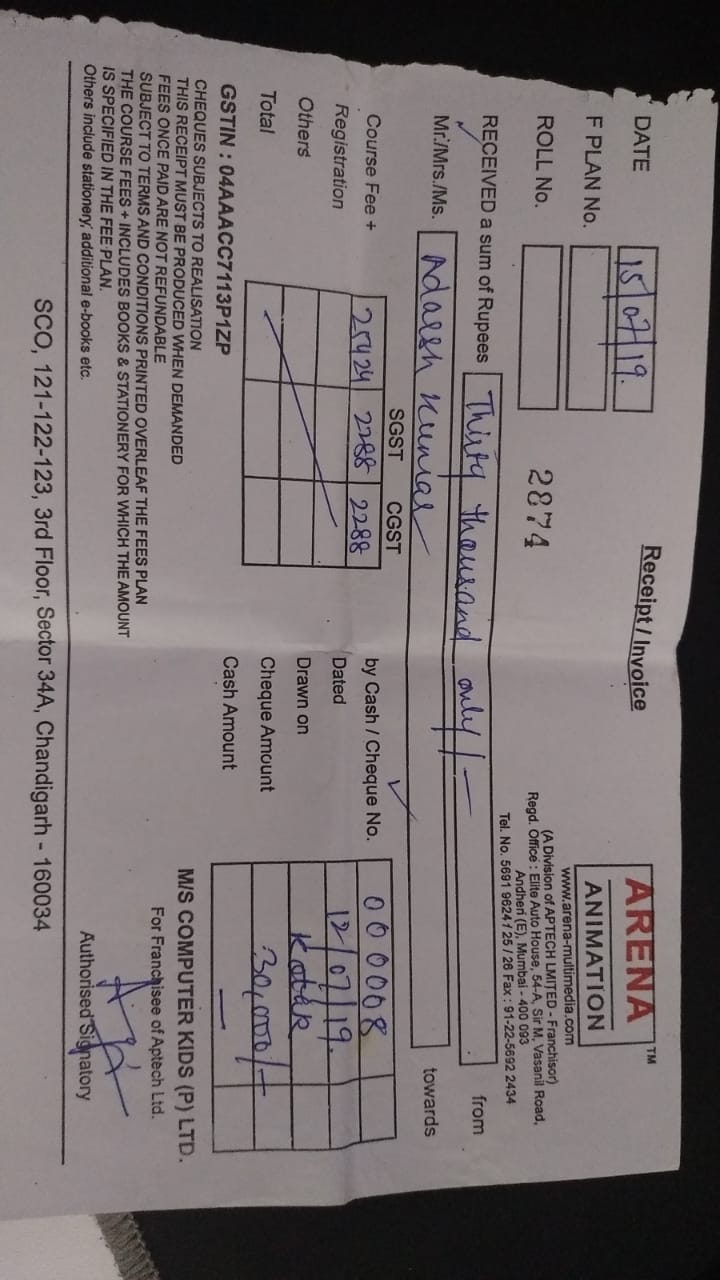 Receipt / Invoice
ARENA TM
ANIMATION
www.arena-multimedia.com
(A Division of APTECH LMITED - Franchisor)
Regd. Office : Elite Auto House, 54-A, Sir M, Vasanil Road,
Andheri (E), Mumbai - 400 093
Tel. No. 5691 9624 / 25 / 26 Fax : 91-22-5692 2434
DATE 15/07/19.
F PLAN No.
ROLL No. 2874
RECEIVED a sum of Rupees Thirty thousand only/- from
Mr./Mrs./Ms. Adarsh Kumar towards
SGST CGST
Course Fee + 25424 2288 2288
Registration
Others
Total
by Cash / Cheque No. 000008
Dated 12/07/19.
Drawn on Kotak
Cheque Amount 30,000/-
Cash Amount —
GSTIN : 04AAACC7113P1ZP
CHEQUES SUBJECTS TO REALISATION
THIS RECEIPT MUST BE PRODUCED WHEN DEMANDED
FEES ONCE PAID ARE NOT REFUNDABLE
SUBJECT TO TERMS AND CONDITIONS PRINTED OVERLEAF THE FEES PLAN
THE COURSE FEES + INCLUDES BOOKS & STATIONERY FOR WHICH THE AMOUNT
IS SPECIFIED IN THE FEE PLAN.
Others include stationery, additional e-books etc.
M/S COMPUTER KIDS (P) LTD.
For Franchisee of Aptech Ltd.
Authorised Signatory
SCO, 121-122-123, 3rd Floor, Sector 34A, Chandigarh - 160034